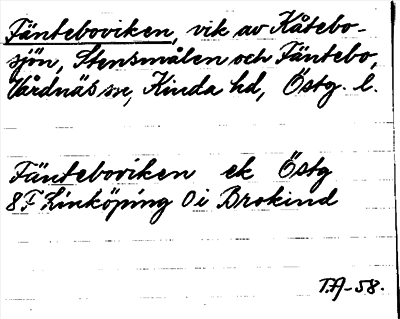 Fänteboviken, vik av Kåtebo-
sjön, Stensmålen och Fäntebo,
Vårdnäs sn, Kinda hd, Östg. l.
Fänteboviken ek Östg
8F Linköping Öi Brokind
T.A-58.